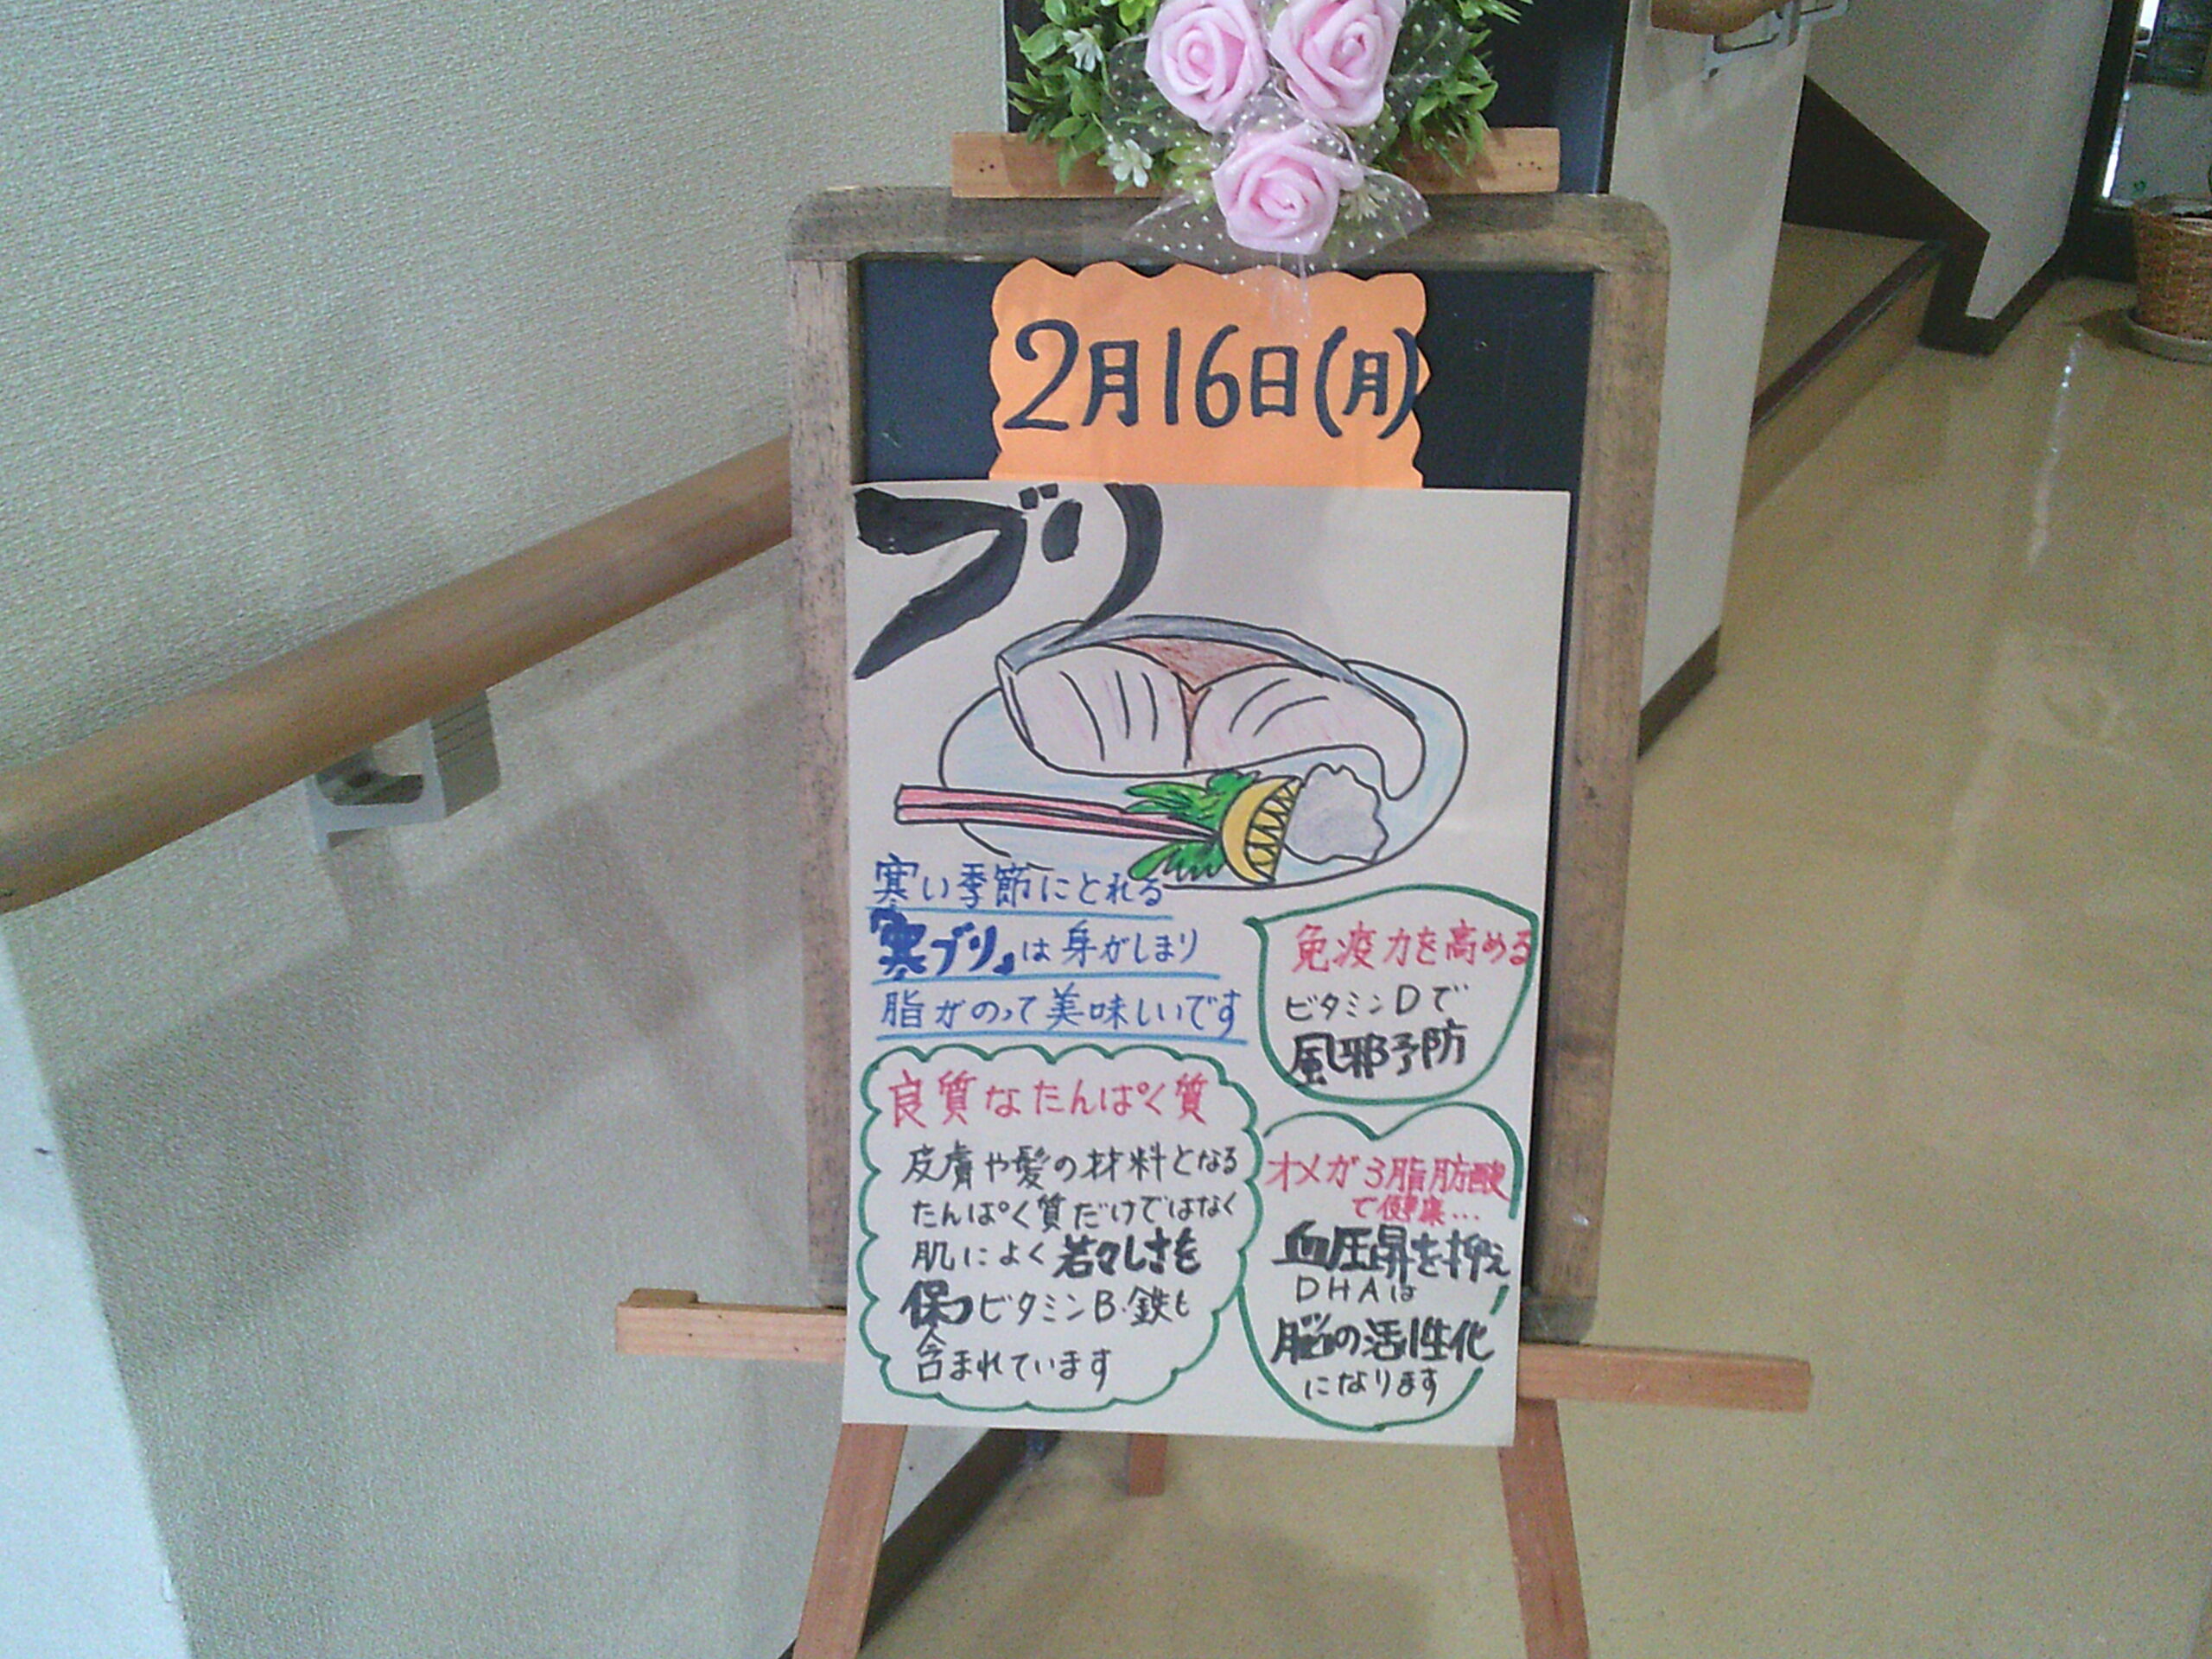 2月16日(月)
ブリ
寒い季節にとれる
「寒ブリ」は身がしまり
脂がのって美味しいです
免疫力を高める
ビタミンDで
風邪予防
良質なたんぱく質
皮膚や髪の材料となる
たんぱく質だけではなく
肌によく若々しさを
保つビタミンB・鉄も
含まれています
オメガ3脂肪酸
で健康…
血圧上昇を抑え
DHAは
脳の活性化
になります